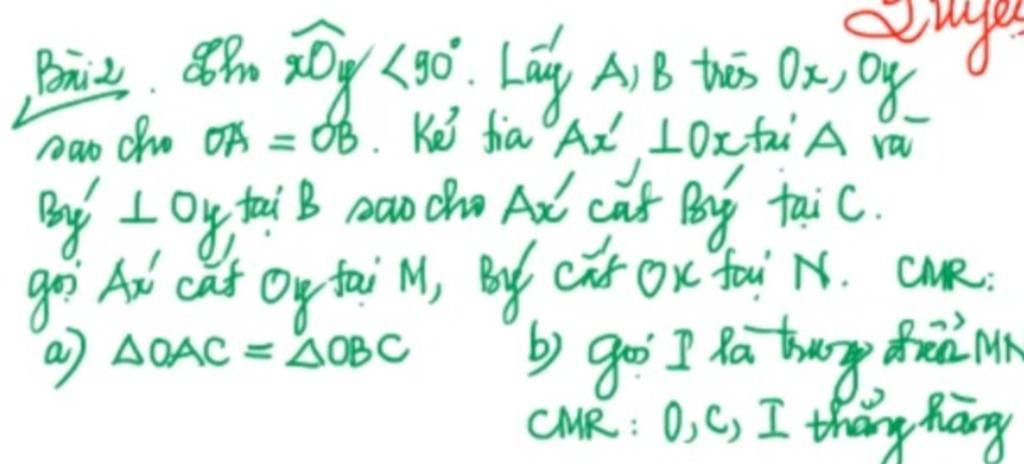 Bài 2. Cho xOy < 90°. Lấy A, B trên Ox, Oy
sao cho OA = OB. Kẻ tia Ax' ⊥ Ox tại A và
By' ⊥ Oy tại B sao cho Ax' cắt By' tại C.
gọi Ax' cắt Oy tại M, By' cắt Ox tại N. CMR:
a) ΔOAC = ΔOBC b) gọi I là trung điểm MN
CMR: O, C, I thẳng hàng